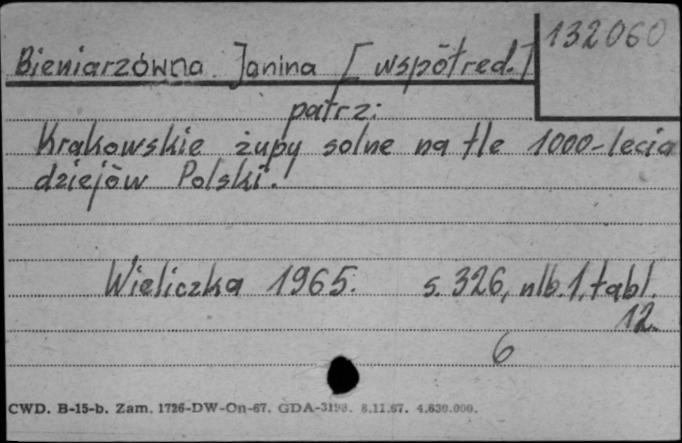 132060
Bieniarzówna Janina [współred.]
patrz:
Krakowskie żupy solne na tle 1000-lecia
dziejów Polski.
Wieliczka 1965. s. 326, nlb. 1, tabl.
12.
6
CWD. B-15-b. Zam. 1726-DW-On-67. GDA-3198. 8.11.67. 4.630.000.